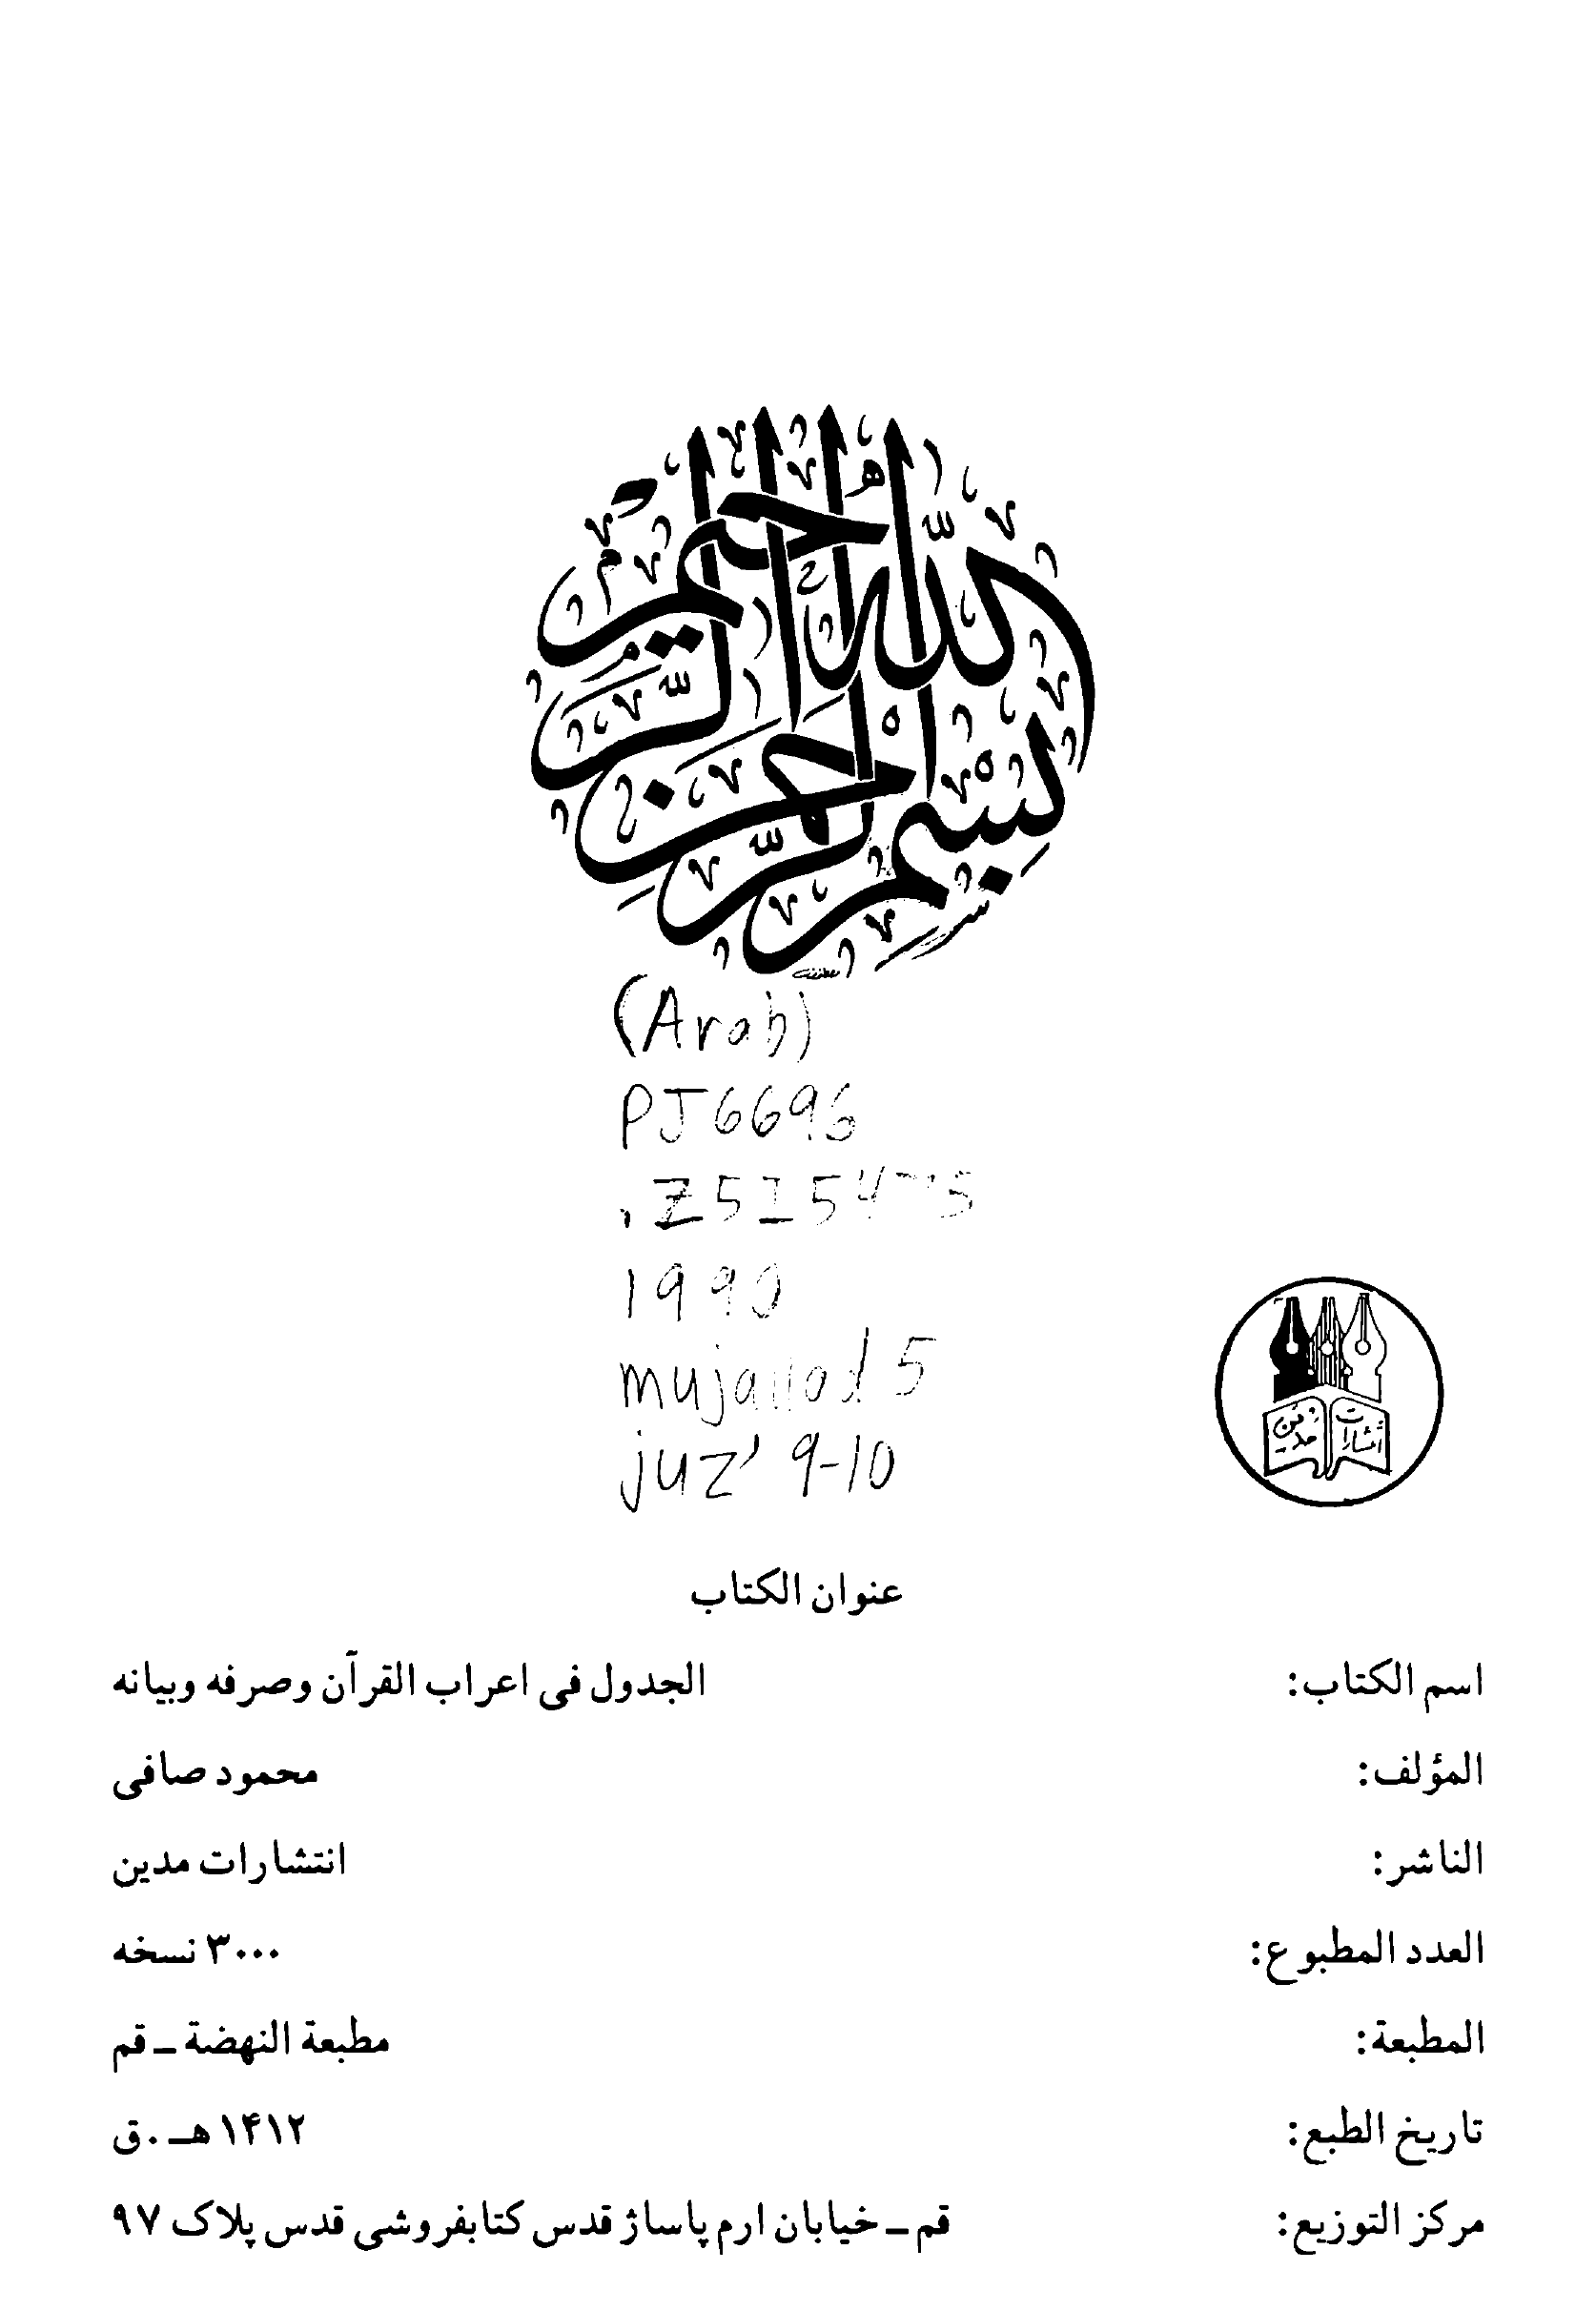 بسم الله الرحمن الرحيم
(Arab)
PJ6696
1990
mujallad 5
juz' 9-10
انتشارات مدين
عنوان الكتاب
اسم الكتاب: الجدول فى اعراب القرآن وصرفه وبيانه
المؤلف: محمود صافى
الناشر: انتشارات مدين
العدد المطبوع: ۳۰۰۰ نسخه
المطبعة: مطبعة النهضة ـ قم
تاريخ الطبع: ۱۴۱۲ هـ .ق
مركز التوزيع: قم ـ خيابان ارم پاساژ قدس كتابفروشى قدس پلاک ۹۷